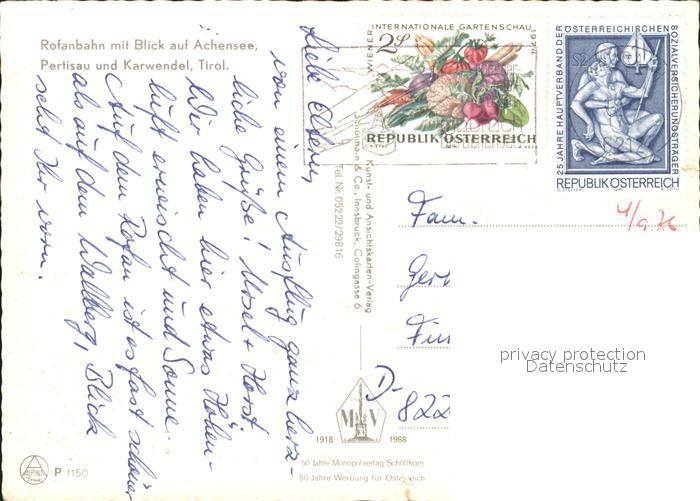 Rofanbahn mit Blick auf Achensee,
Pertisau und Karwendel, Tirol.
WIENER INTERNATIONALE GARTENSCHAU 1974
2 S
REPUBLIK ÖSTERREICH
25 JAHRE HAUPTVERBAND DER ÖSTERREICHISCHEN SOZIALVERSICHERUNGSTRÄGER
REPUBLIK ÖSTERREICH
Liebe Eltern,
von einem Ausflug ganz herz-
liche Grüße! Ursel + Horst
Wir haben hier etwas Höhen-
luft erwischt und Sonne.
Auf dem Rofan ist es fast schöner
als auf dem Wallberg, Blick
seht Ihr vorn.
Kunst- und Ansichtskarten-Verlag
Schöllhorn & Co., Innsbruck, Colingasse 6
Tel. Nr. 05222/29816
Fam.
4/9.76
Ger
Fin
D-
822
privacy protection
Datenschutz
M V
1918 1968
50 Jahre Monopolverlag Schöllhorn
50 Jahre Werbung für Österreich
ALPINA
Druck
P 1150